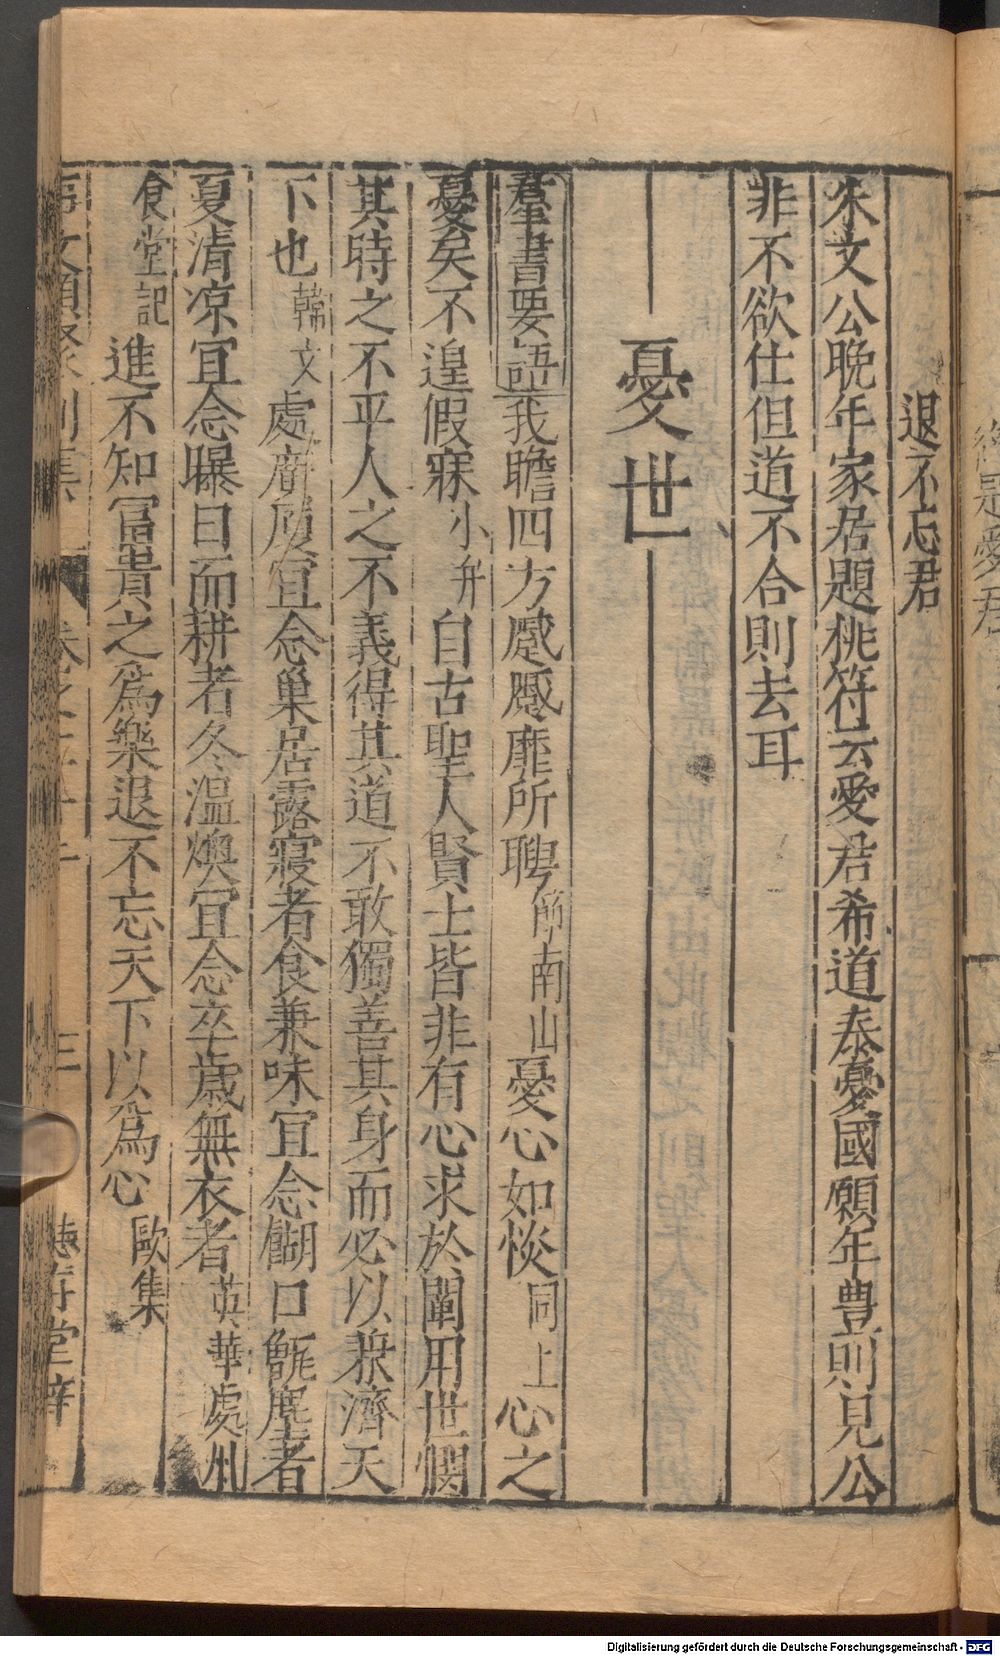 退不忘君
朱文公晚年家居題桃符云愛君希道泰憂國願年豊則見公
非不欲仕但道不合則去耳
憂世
羣書要語我瞻四方蹙蹙靡所騁節南山憂心如惔同上心之
憂矣不遑假寐小弁自古聖人賢士皆非有心求於聞用世憫
其時之不平人之不義得其道不敢獨善其身而必以兼濟天
下也韓文處廣厦宜念巢居露寢者食兼味宜念餬口甑塵者
夏清凉宜念曝日而耕者冬溫燠宜念卒歲無衣者英華處州
食堂記進不知冨貴之爲樂退不忘天下以爲心歐集
三
堂梓
Digitalisierung gefördert durch die Deutsche Forschungsgemeinschaft - DFG